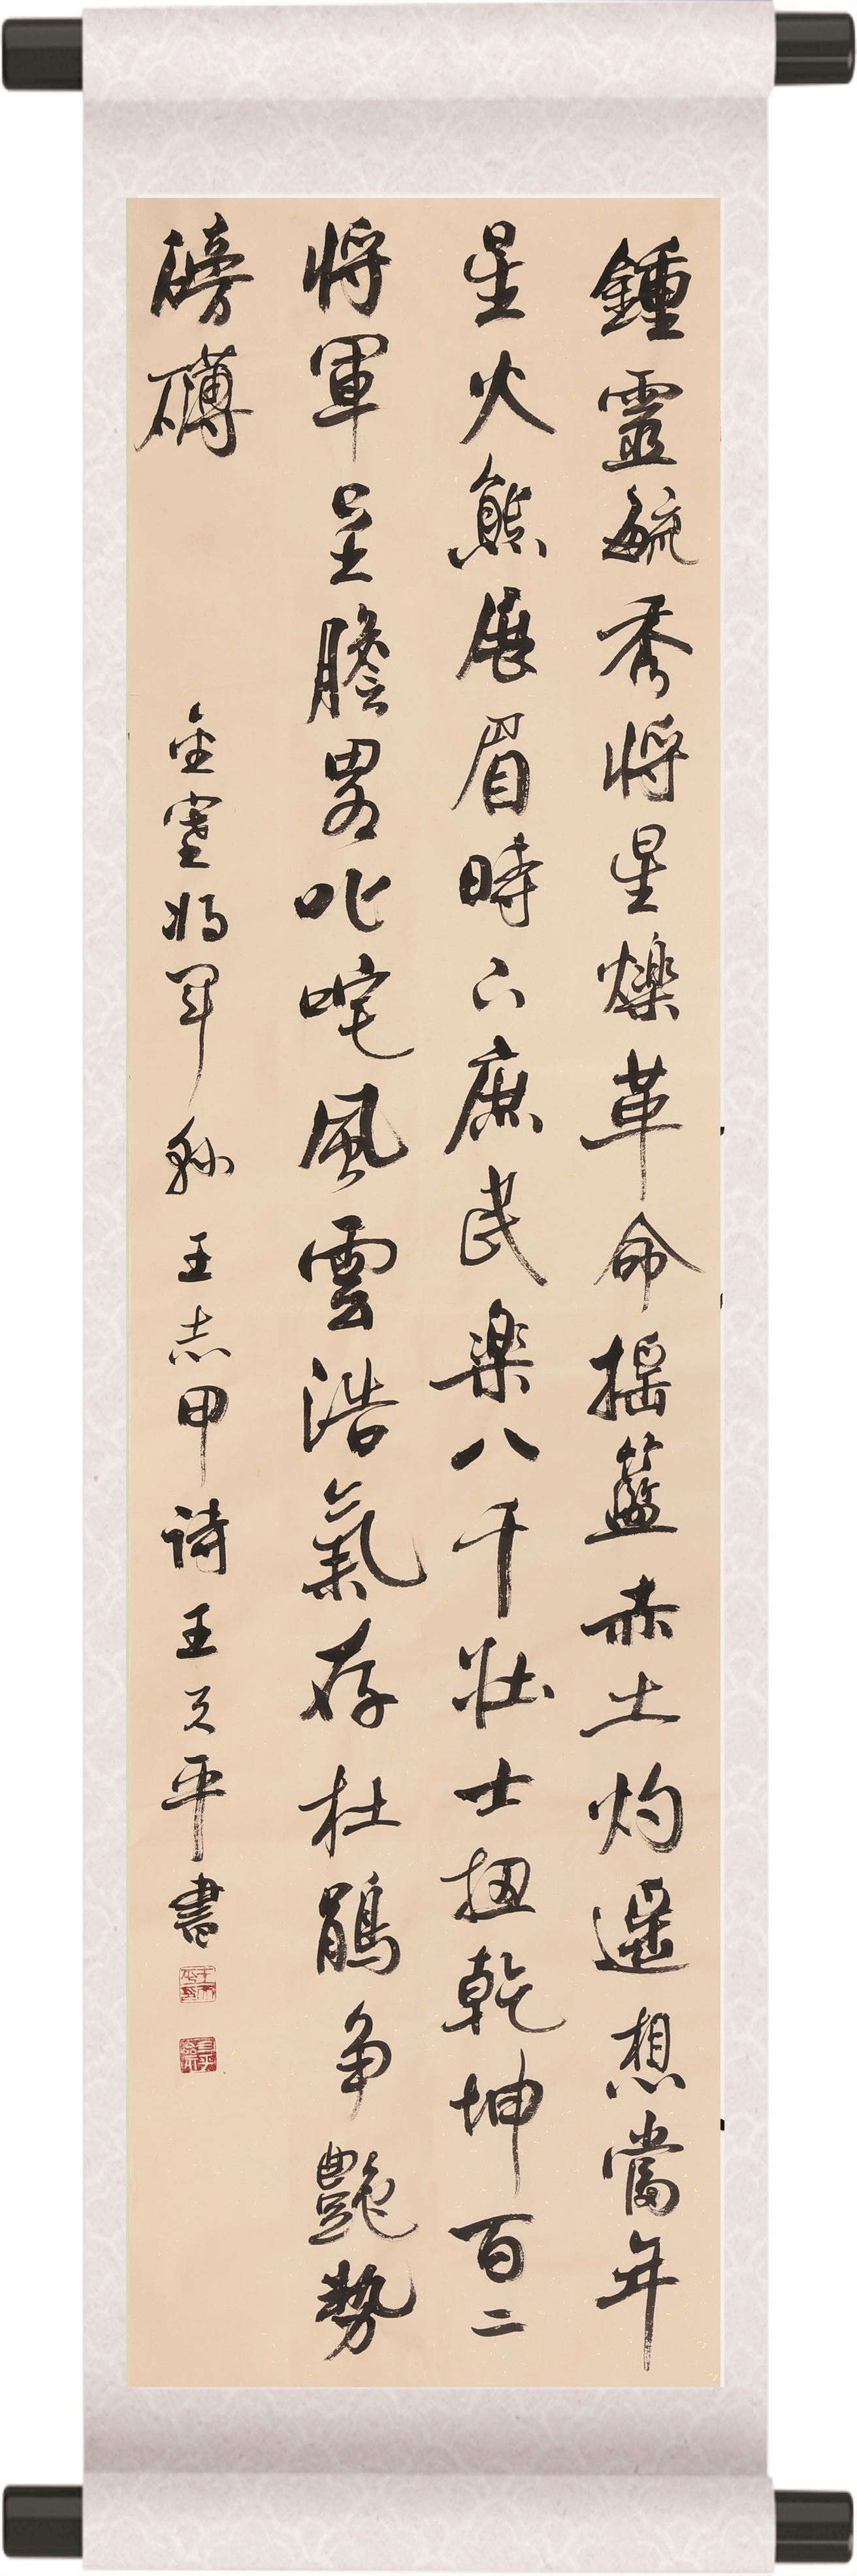 鍾靈毓秀將星爍革命摇藍赤土灼遥想當年
星火熊展眉時下庶民樂八千壯士扭乾坤百二
將軍呈膽畧叱咤風雲浩氣存杜鵑争艷勢
磅礴
金寨将军縣 王志甲詩王天平書